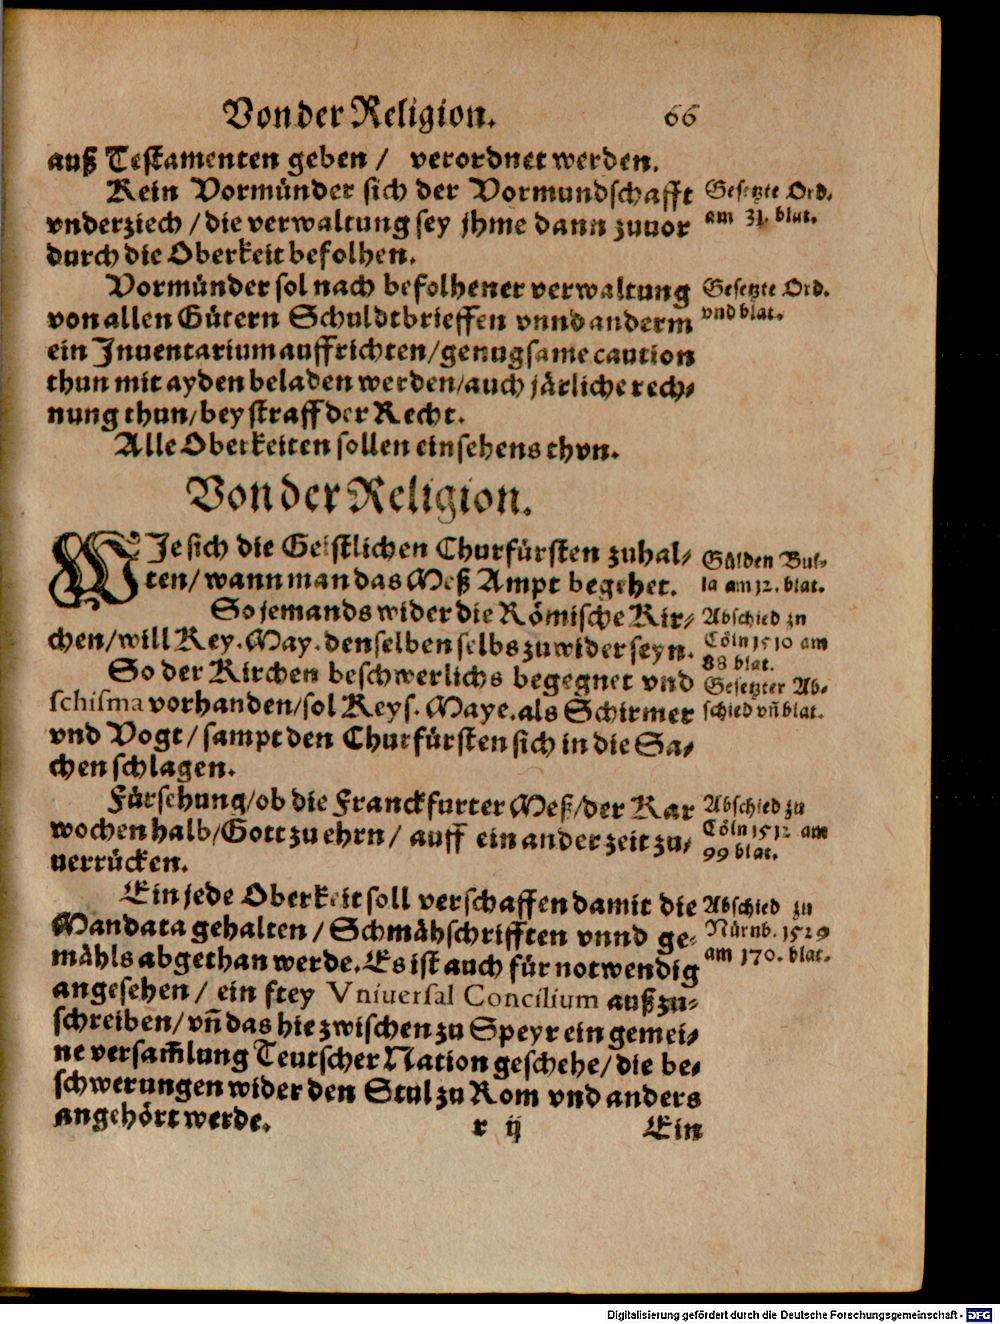 Von der Religion. 66
auß Testamenten geben / verordnet werden.
Kein Vormünder sich der Vormundschafft
vnderziech / die verwaltung sey jhme dann zuuor
durch die Oberkeit befolhen.
Gesetzte Ord.
am 31. blat.
Vormünder sol nach befolhener verwaltung
von allen Gütern Schuldtbrieffen vnnd anderm
ein Inuentarium auffrichten/genugsame caution
thun mit ayden beladen werden/auch järliche rech-
nung thun/bey straff der Recht.
Gesetzte Ord.
vnd blat.
Alle Oberkeiten sollen einsehens thvn.
Von der Religion.
WJe sich die Geistlichen Churfürsten zuhal-
ten/wann man das Meß Ampt begehet.
Gülden Bul-
la am 12. blat.
So jemands wider die Römische Kir-
chen/will Key. May. denselben selbs zuwider seyn.
Abschied zu
Cöln 1510 am
88 blat.
So der Kirchen beschwerlichs begegnet vnd
schisma vorhanden/sol Keys. Maye. als Schirmer
vnd Vogt/sampt den Churfürsten sich in die Sa-
chen schlagen.
Gesetzter Ab-
schied vñ blat.
Fürsehung/ob die Franckfurter Meß/der Kar
wochen halb/Gott zu ehrn/ auff ein ander zeit zu-
uerrücken.
Abschied zu
Cöln 1512 am
99 blat.
Ein jede Oberkeit soll verschaffen damit die
Mandata gehalten/Schmähschrifften vnnd ge-
mähls abgethan werde. Es ist auch für notwendig
angesehen/ ein frey Vniuersal Concilium außzu-
schreiben/vñ das hie zwischen zu Speyr ein gemei-
ne versam̃lung Teutscher Nation geschehe/die be-
schwerungen wider den Stul zu Rom vnd anders
angehört werde.
Abschied zu
Nürnb. 1529
am 170. blat.
r ij Ein
Digitalisierung gefördert durch die Deutsche Forschungsgemeinschaft - DFG